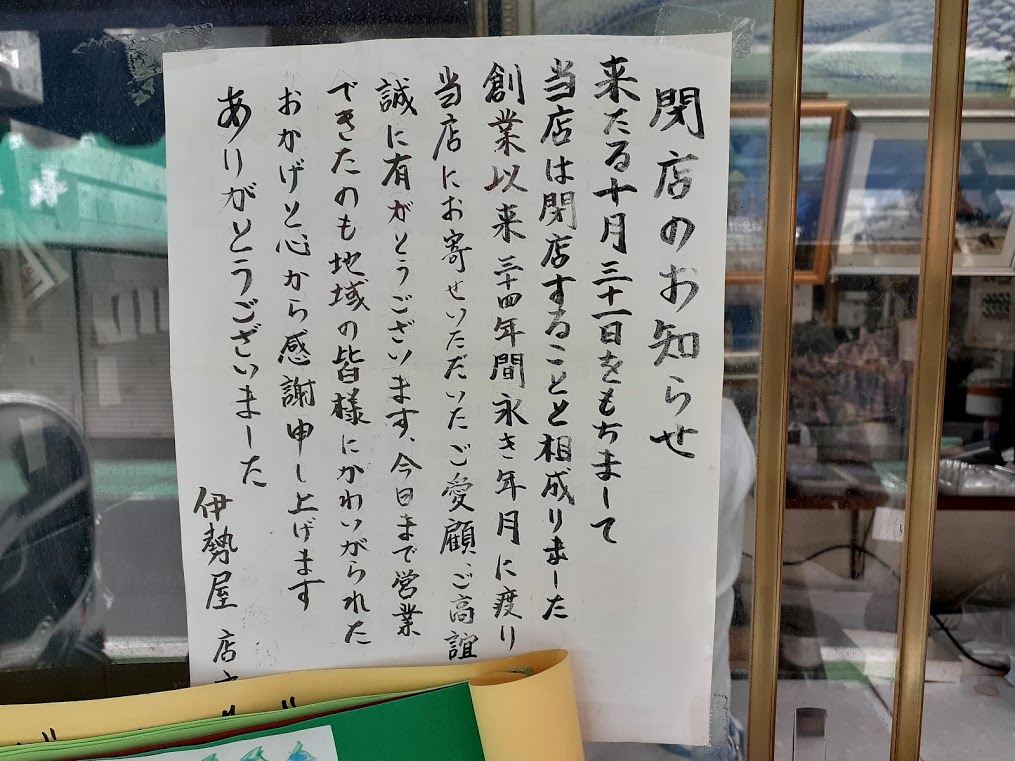 閉店のお知らせ
来たる十月三十一日をもちまして
当店は閉店することと相成りました
創業以来三十四年間永き年月に渡り
当店にお寄せいただいたご愛顧、ご高誼
誠に有がとうございます、今日まで営業
できたのも地域の皆様にかわいがられた
おかげと心から感謝申し上げます
ありがとうございました
伊勢屋 店